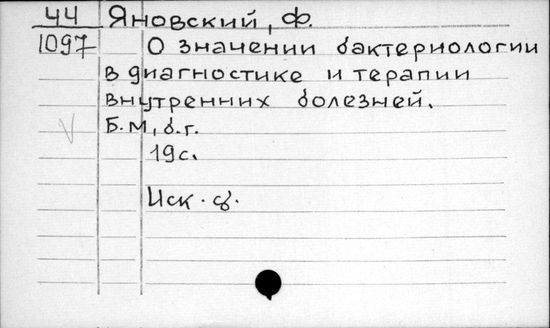 44 Яновский, Ф.
1097 О значении бактериологии
в диагностике и терапии
внутренних болезней.
Б.м, б.г.
19с.
Иск.